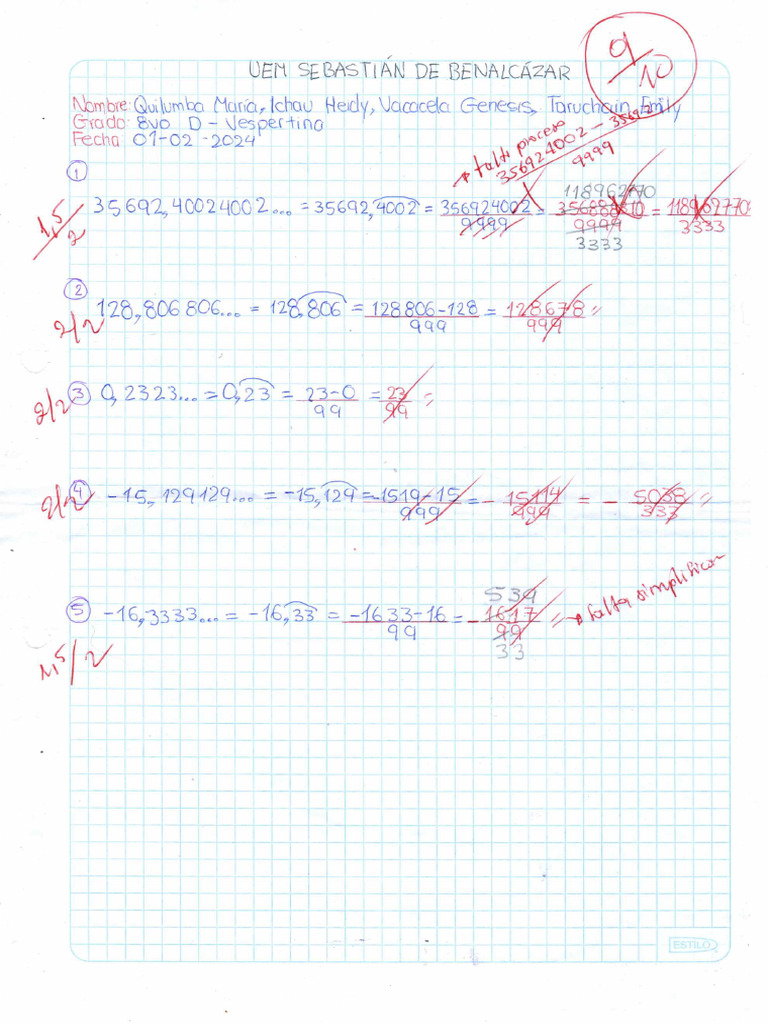 9/10
UEM SEBASTIÁN DE BENALCÁZAR
Nombre: Quilumba María, Ichau Heidy, Vacacela Genesis, Taruchain Emily
Grado: 8vo D - Vespertina
Fecha 01-02-2024
falta proceso
356924002 - 35692
9999
1
1,5/2
35692,40024002... = 35692,4002 = 356924002/9999 = 356888310/9999 = 118962770/3333
118962770
3333
2
2/2
128,806806... = 128,806 = 128806-128/999 = 128678/999
3
2/2
0,2323... = 0,23 = 23-0/99 = 23/99
4
2/2
-15,129129... = -15,129 = -1519-15/999 = -15114/999 = -5038/333
5
1,5/2
-16,3333... = -16,33 = -1633-16/99 = -1617/99
539
33
falta simplificar
ESTILO